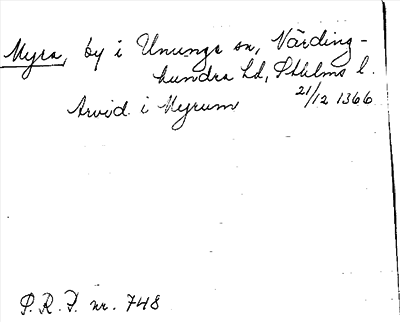 Myra, by i Ununge sn, Närding-
hundra hd, Sthlms l.
Arvid i Myrum 21/12 1366
P.R.F. nr. 748